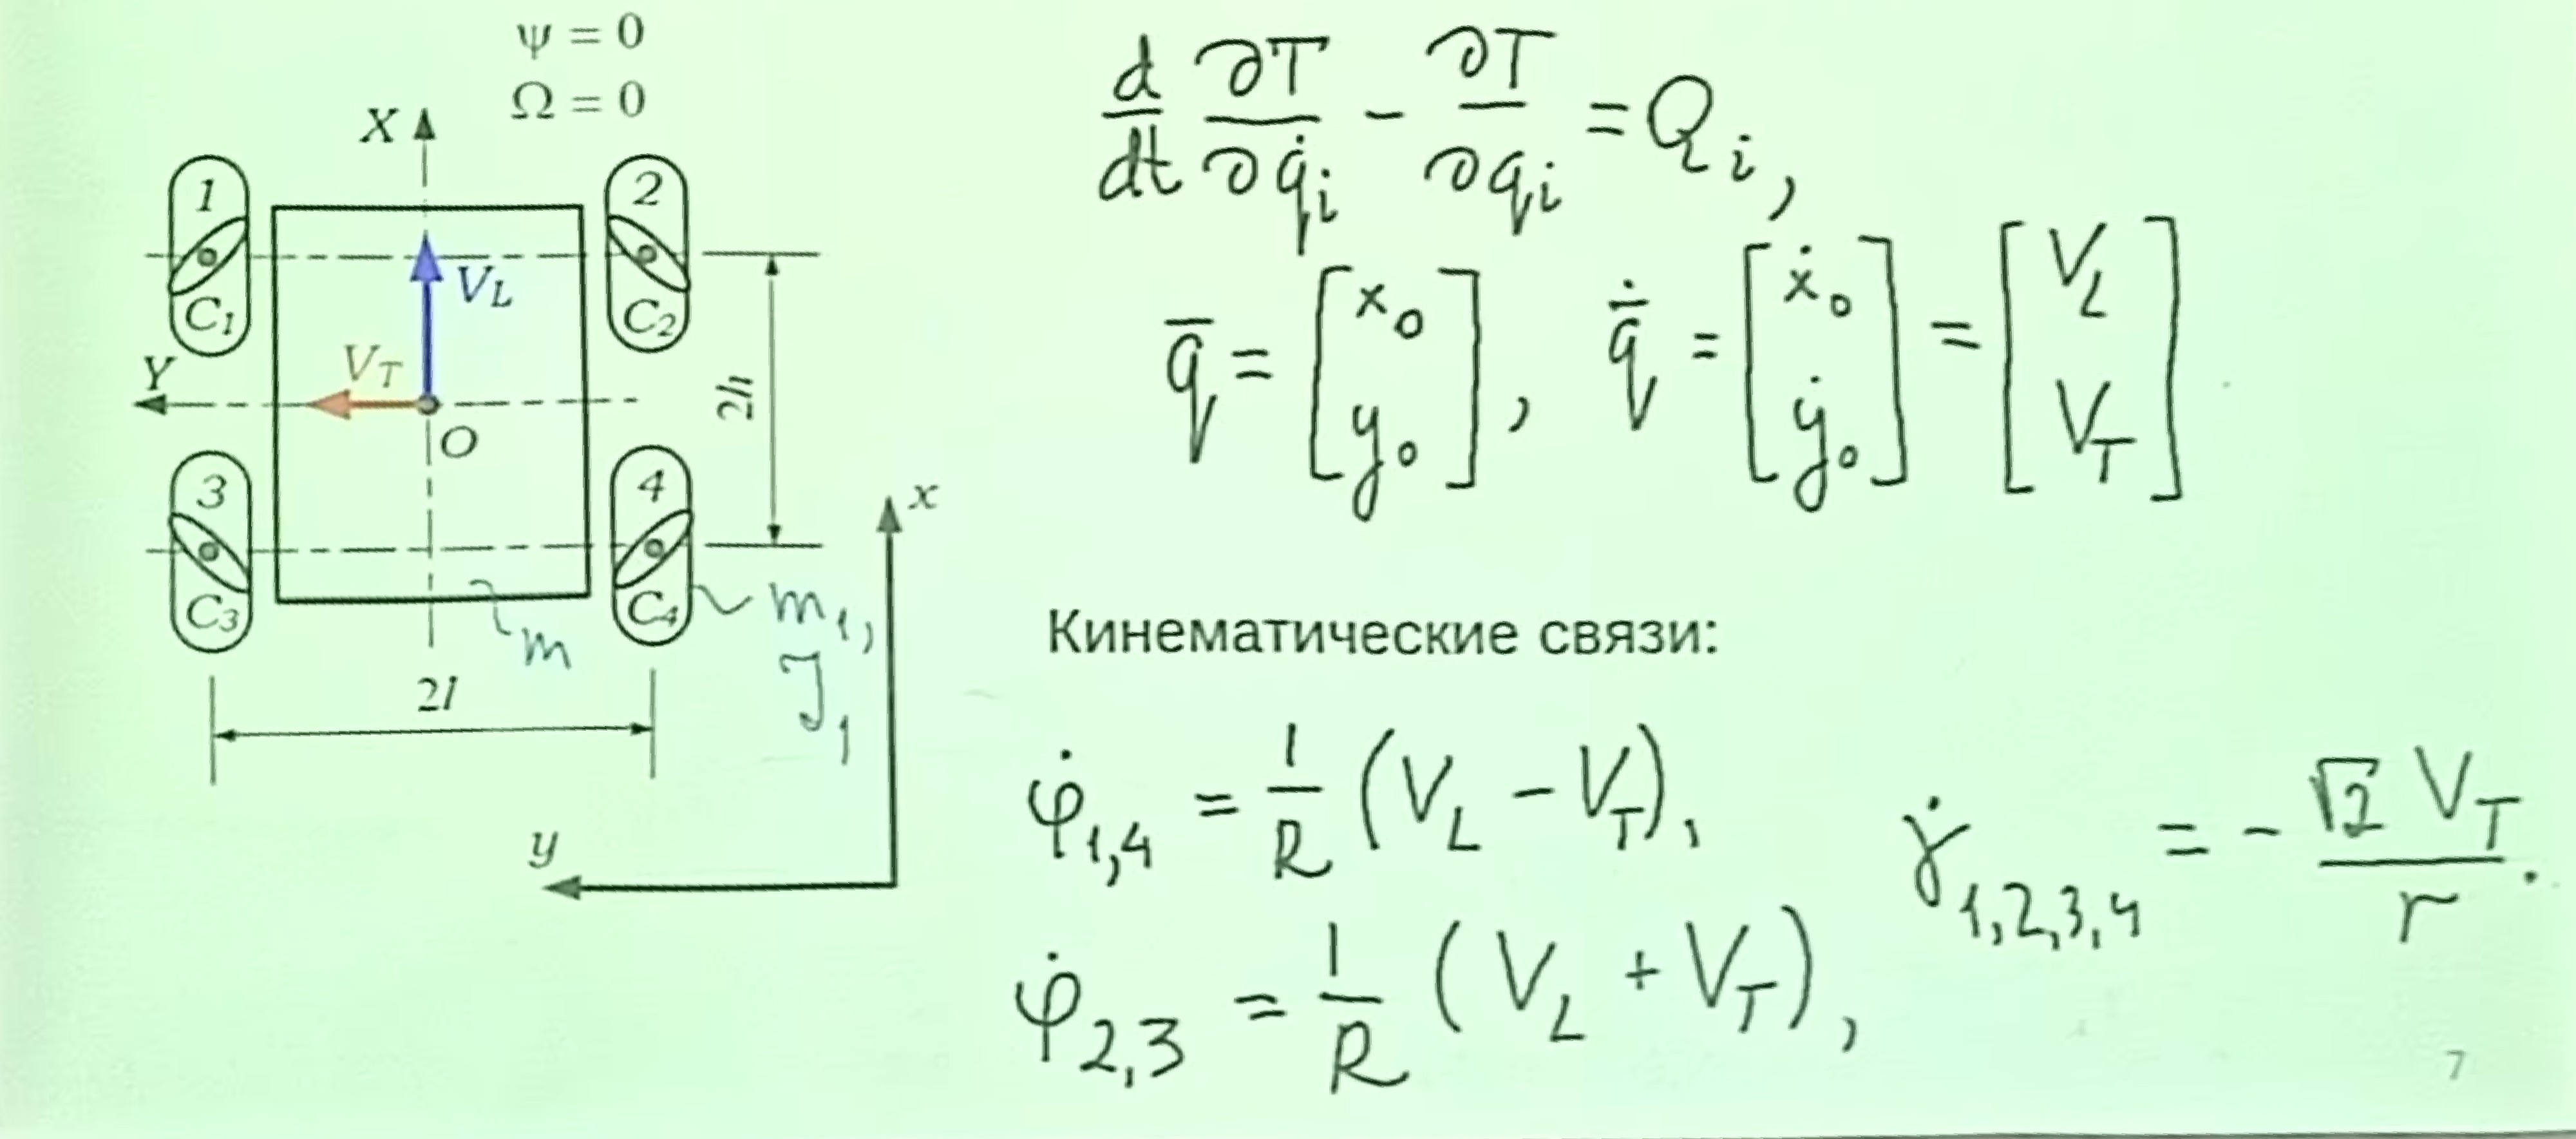 ψ = 0
Ω = 0
X
1
2
V_L
C₁
C₂
Y
V_T
O
2h
3
4
C₃
C₄
m
m₁,
J₁
2l
x
y
d/dt ∂T/∂q̇ᵢ − ∂T/∂qᵢ = Qᵢ,
q̄ = [x₀ y₀], q̄̇ = [ẋ₀ ẏ₀] = [V_L V_T]
Кинематические связи:
φ̇₁,₄ = 1/R (V_L − V_T),
γ̇₁,₂,₃,₄ = − √2 V_T / r.
φ̇₂,₃ = 1/R (V_L + V_T),
7